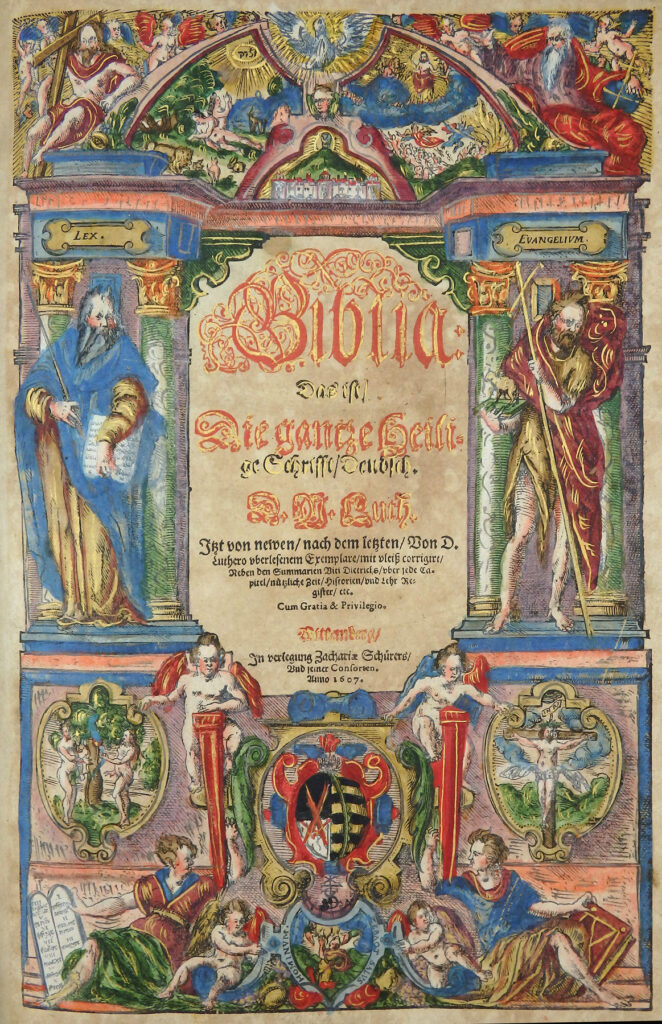 LEX.
EVANGELIVM.
Biblia:
Das ist/
Die gantze Heili-
ge Schrifft/Deudsch.
D. M. Luth.
Jtzt von newen/nach dem letzten/Von D.
Luthero vberlesenem Exemplare/mit vleiß corrigirt/
Neben den Summarien Viti Dietrichs/vber jede Ca-
pitel/nützliche Zeit/Historien/vnd Lehr Re-
gister/etc.
Cum Gratia & Privilegio.
Wittemberg/
Jn verlegung Zachariæ Schürers/
Vnd seiner Consorten.
Anno 1607.